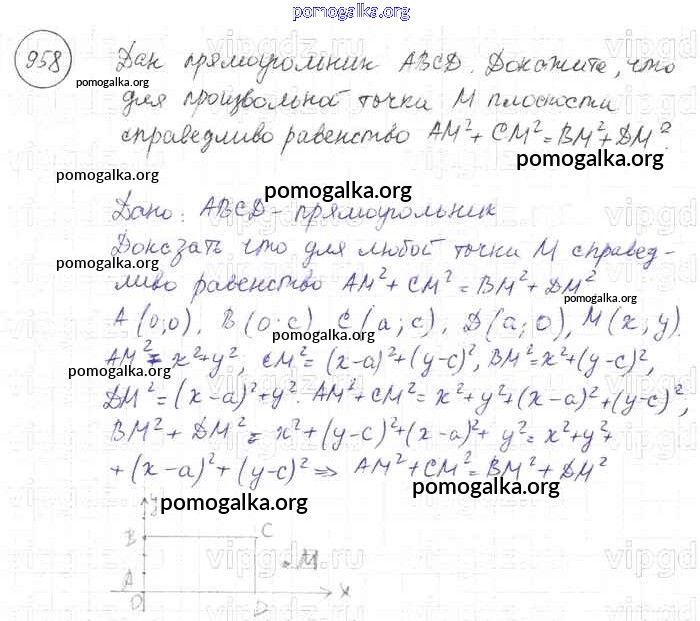 pomogalka.org
958 Дан прямоугольник ABCD. Докажите, что
pomogalka.org
для произвольной точки M плоскости
справедливо равенство AM²+CM²=BM²+DM².
pomogalka.org
pomogalka.org
pomogalka.org
Дано: ABCD-прямоугольник
Доказать что для любой точки M справед-
pomogalka.org
ливо равенство AM²+CM²=BM²+DM²
pomogalka.org
A(0;0), B(0;c), C(a;c), D(a;0), M(x;y).
pomogalka.org
AM²=x²+y², CM²=(x-a)²+(y-c)², BM²=x²+(y-c)²,
pomogalka.org
DM²=(x-a)²+y². AM²+CM²=x²+y²+(x-a)²+(y-c)²,
pomogalka.org
BM²+DM²=x²+(y-c)²+(x-a)²+y²=x²+y²+
+(x-a)²+(y-c)² ⇒ AM²+CM²=BM²+DM²
pomogalka.org
pomogalka.org
y
B C
M
A x
O D
vipgdz.ru